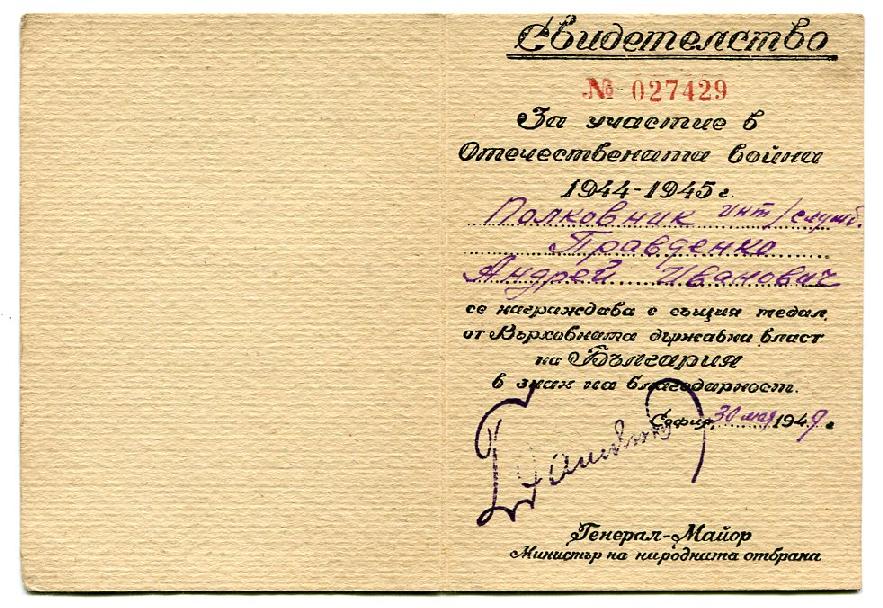 Свидетелство
№ 027429
За участие в
Отечествената война
1944-1945 г.
Полковник инт/служб.
Правденко
Андрей Иванович
се награждава с същия медал
от Върховната държавна власт
на България
в знак на благодарност.
София, 30 май 1949 г.
Генерал-Майор
Министър на народната отбрана